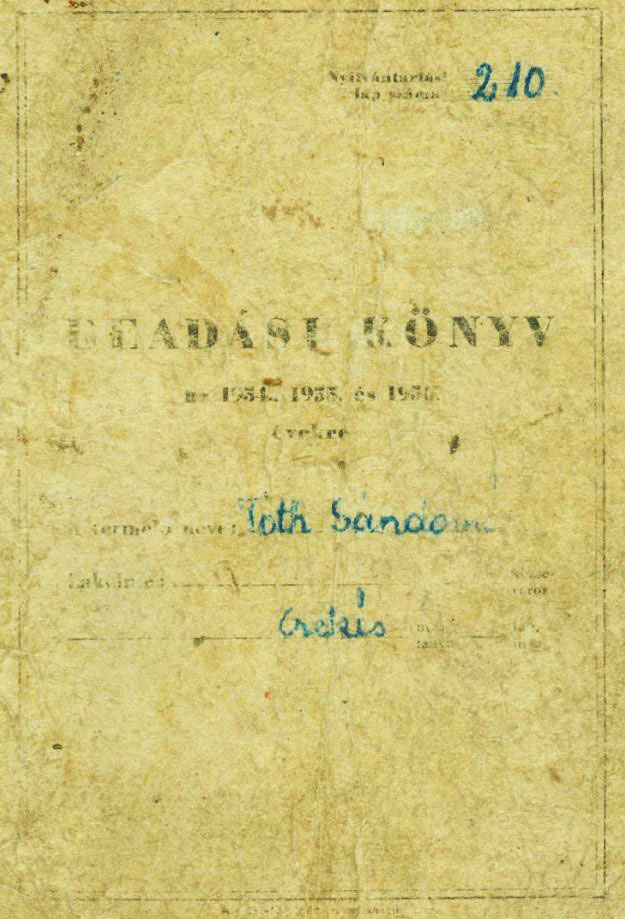 Nyilvántartási 210.
lap száma
BEADÁSI KÖNYV
az 1954., 1955. és 1956.
évekre
A termelő neve: Tóth Sándorné
Lakcíme: község
város